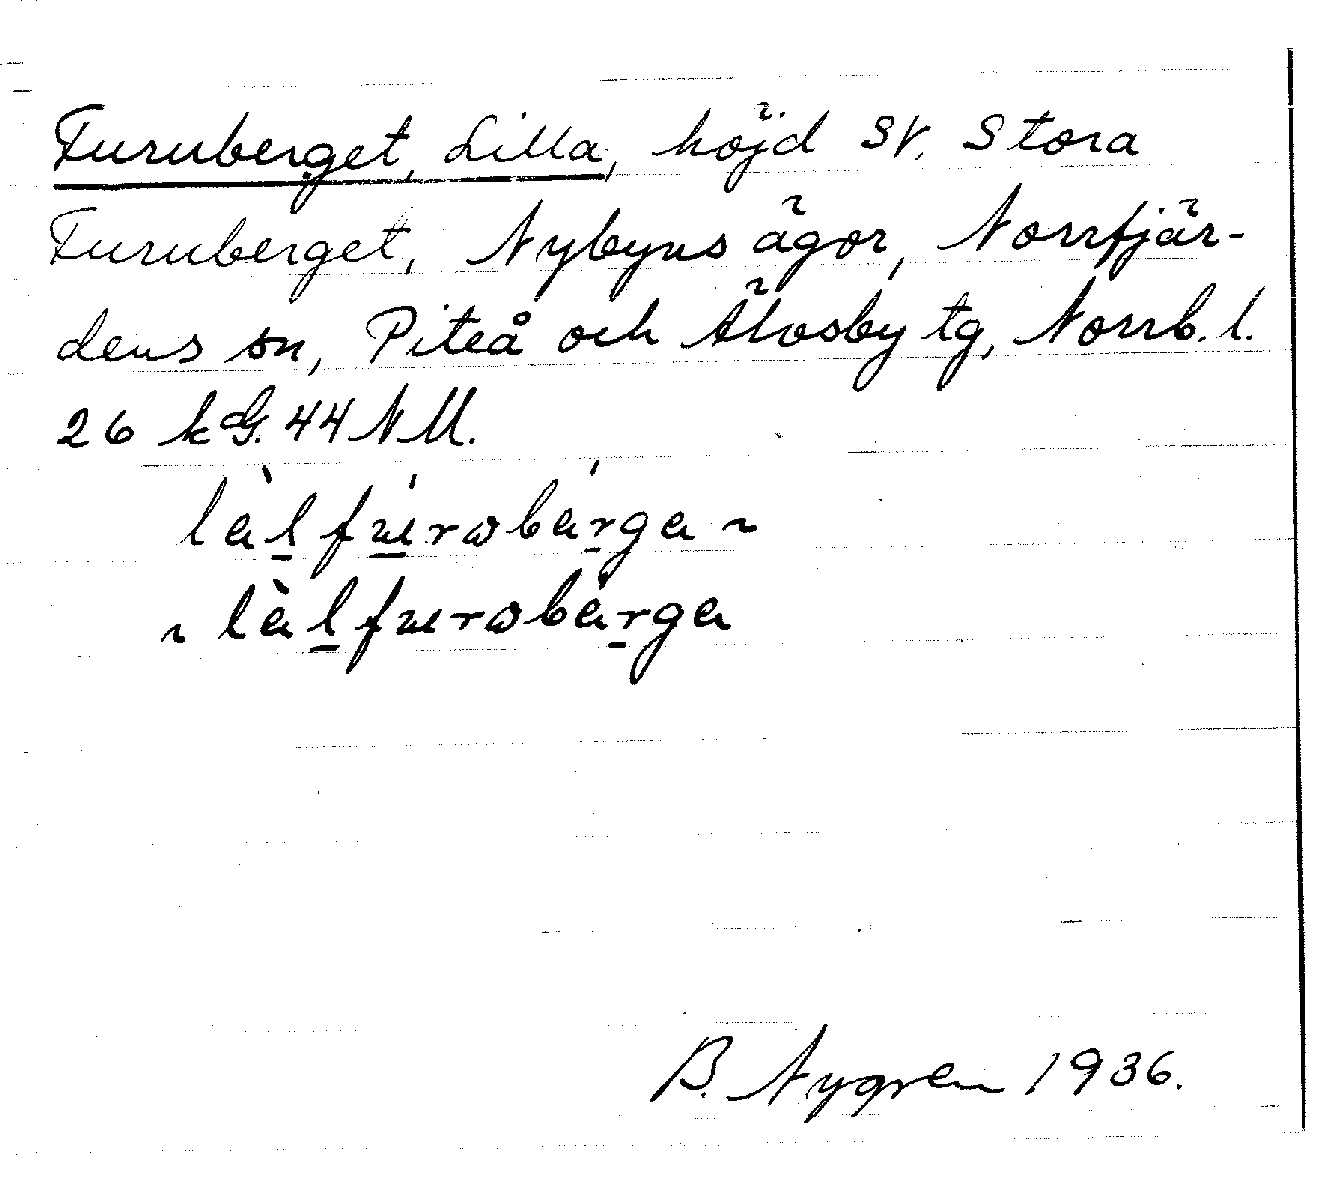 Furuberget, Lilla, höjd SV. Stora
Furuberget, Nybyns ägor, Norrfjär-
dens sn, Piteå och Älvsby tg, Norrb. l.
26 kG. 44 NM.
làlfurωbárga ~
~ làlfurωbàrga
B. Nygren 1936.